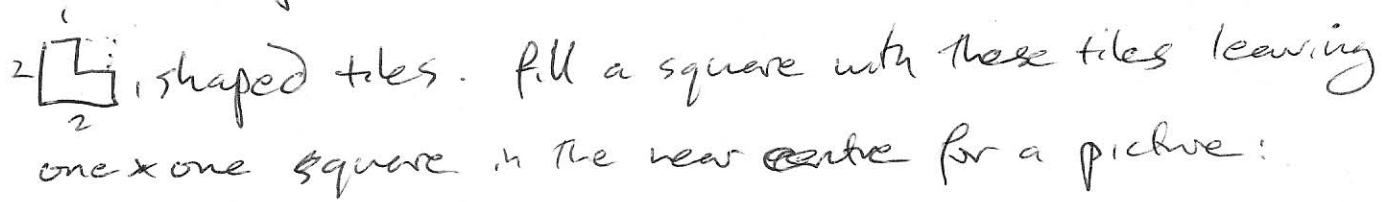 1
2 1, shaped tiles. fill a square with these tiles leaving
2
one x one square in the near centre for a picture: